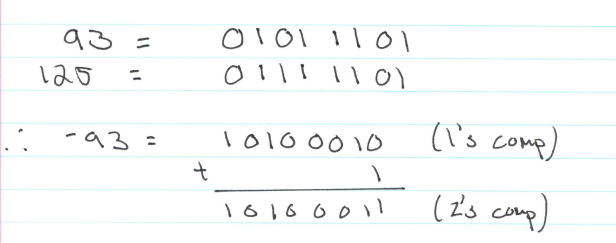 93 = 01011101
125 = 01111101
∴ -93 = 10100010 (1's comp)
+ 1
10100011 (2's comp)